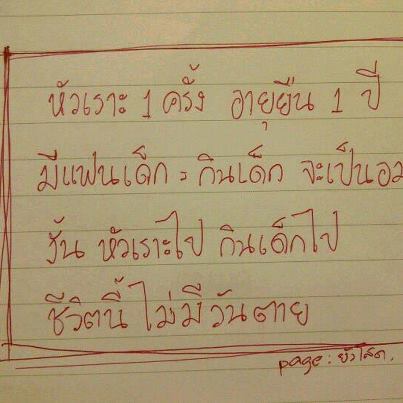 หัวเราะ 1 ครั้ง อายุยืน 1 ปี
มีแฟนเด็ก = กินเด็ก จะเป็นอม
งั้น หัวเราะไป กินเด็กไป
ชีวิตนี้ ไม่มีวันตาย
page : ยัวโสด.